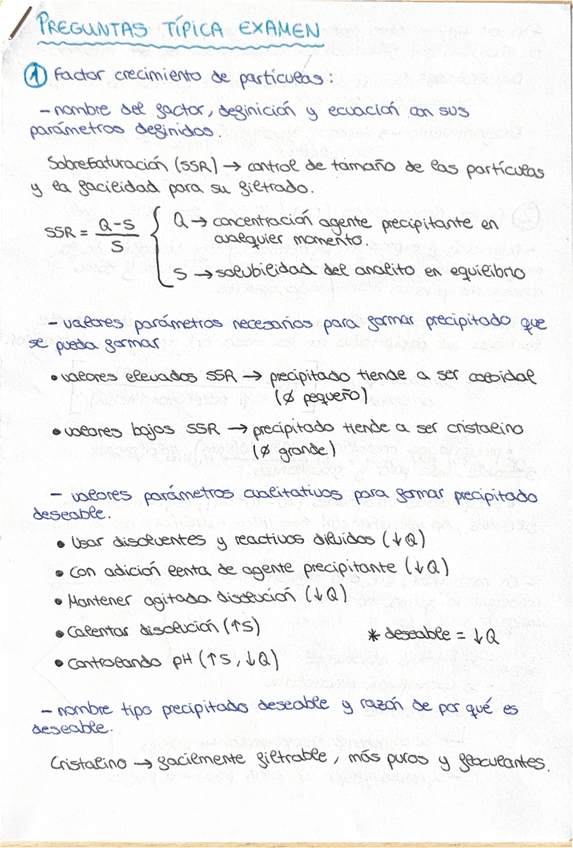 PREGUNTAS TÍPICA EXAMEN
① Factor crecimiento de partículas:
- nombre del factor, definición y ecuación con sus
parámetros definidos.
Sobresaturación (SSR) → control de tamaño de las partículas
y la facilidad para su filtrado.
SSR = (Q-S)/S { Q → concentración agente precipitante en
cualquier momento.
S → solubilidad del analito en equilibrio
- valores parámetros necesarios para formar precipitado que
se pueda formar
• valores elevados SSR → precipitado tiende a ser coloidal
(ø pequeño)
• valores bajos SSR → precipitado tiende a ser cristalino
(ø grande)
- valores parámetros cualitativos para formar precipitado
deseable.
• Usar disolventes y reactivos diluidos (↓Q)
• Con adición lenta de agente precipitante (↓Q)
• Mantener agitada disolución (↓Q)
• Calentar disolución (↑S) * deseable = ↓Q
• Controlando pH (↑S, ↓Q)
- nombre tipo precipitado deseable y razón de por qué es
deseable.
Cristalino → facilmente filtrable, más puros y floculantes.